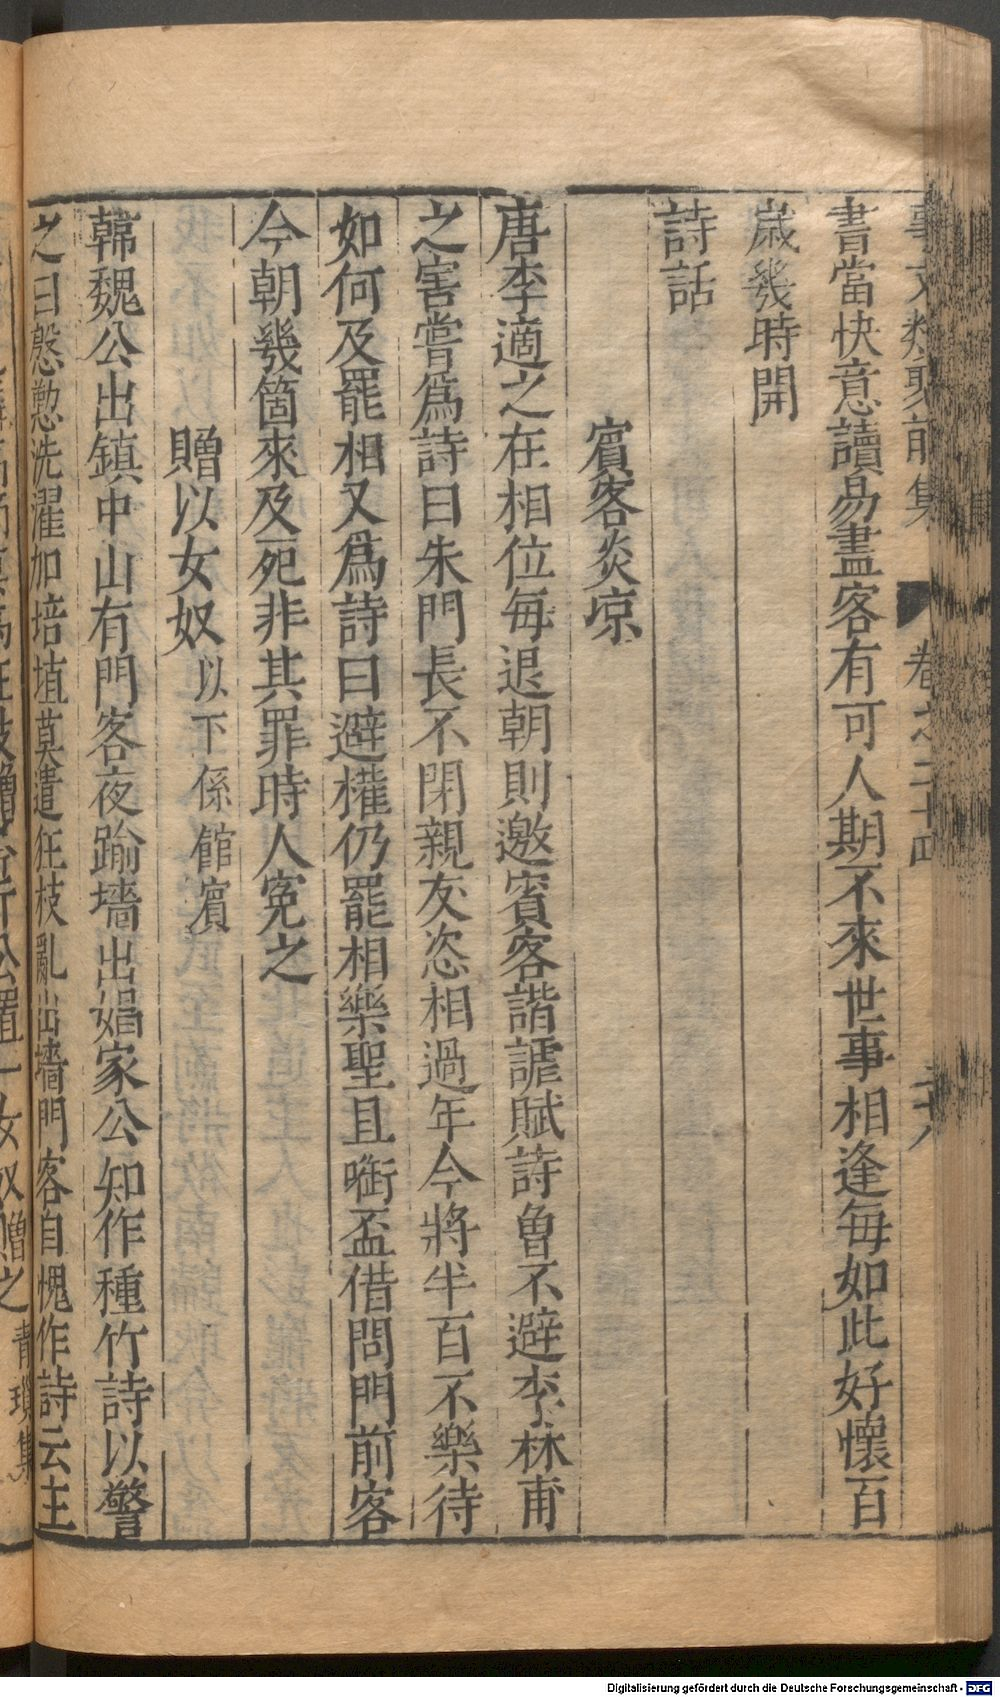 事文類聚前集 卷之二十四 二十八
書當快意讀易盡客有可人期不來世事相逢每如此好懷百
歲幾時開
詩話
賓客炎凉
唐李適之在相位每退朝則邀賓客諧謔賦詩曾不避李林甫
之害嘗爲詩曰朱門長不閉親友恣相過年今將半百不樂待
如何及罷相又爲詩曰避權仍罷相樂聖且啣盃借問門前客
今朝幾箇來及死非其罪時人寃之
贈以女奴以下係館賓
韓魏公出鎮中山有門客夜踰墻出娼家公知作種竹詩以警
之曰慇懃洗濯加培埴莫遣狂枝亂出墻門客自愧作詩云主
女奴贈之青瑣集
Digitalisierung gefördert durch die Deutsche Forschungsgemeinschaft - DFG